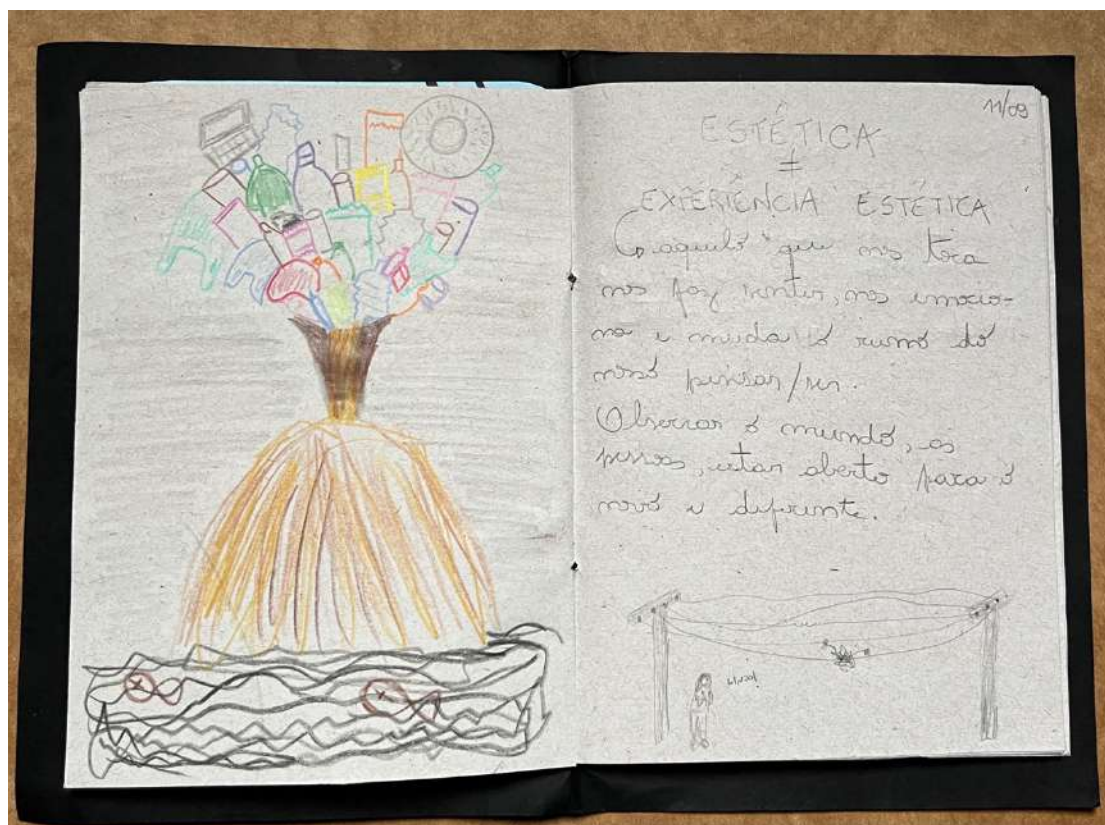 11/09
ESTÉTICA
=
EXPERIÊNCIA ESTÉTICA
aquilo que nos toca
nos faz sentir, nos emocio-
na e muda o rumo do
nosso pensar/ser.
Observar o mundo, as
pessoas, estar aberto para o
novo e diferente.